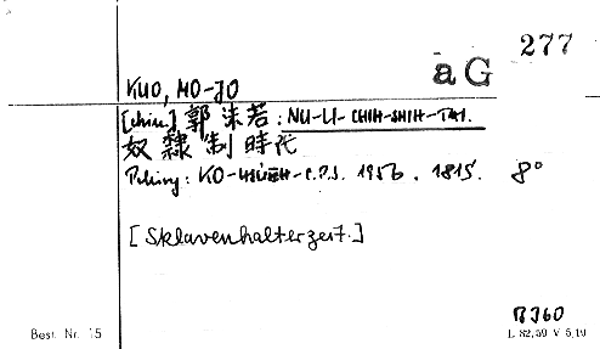 277
aG
KUO, MO-JO
[chin.] 郭沫若: NU-LI-CHIH-SHIH-TAI.
奴隸制時代
Peking: KO-HSÜEH-C.P.S. 1956. 1815. 8°
[Sklavenhalterzeit.]
BJ60
Best. Nr. 15
L 82,59 V 5,19